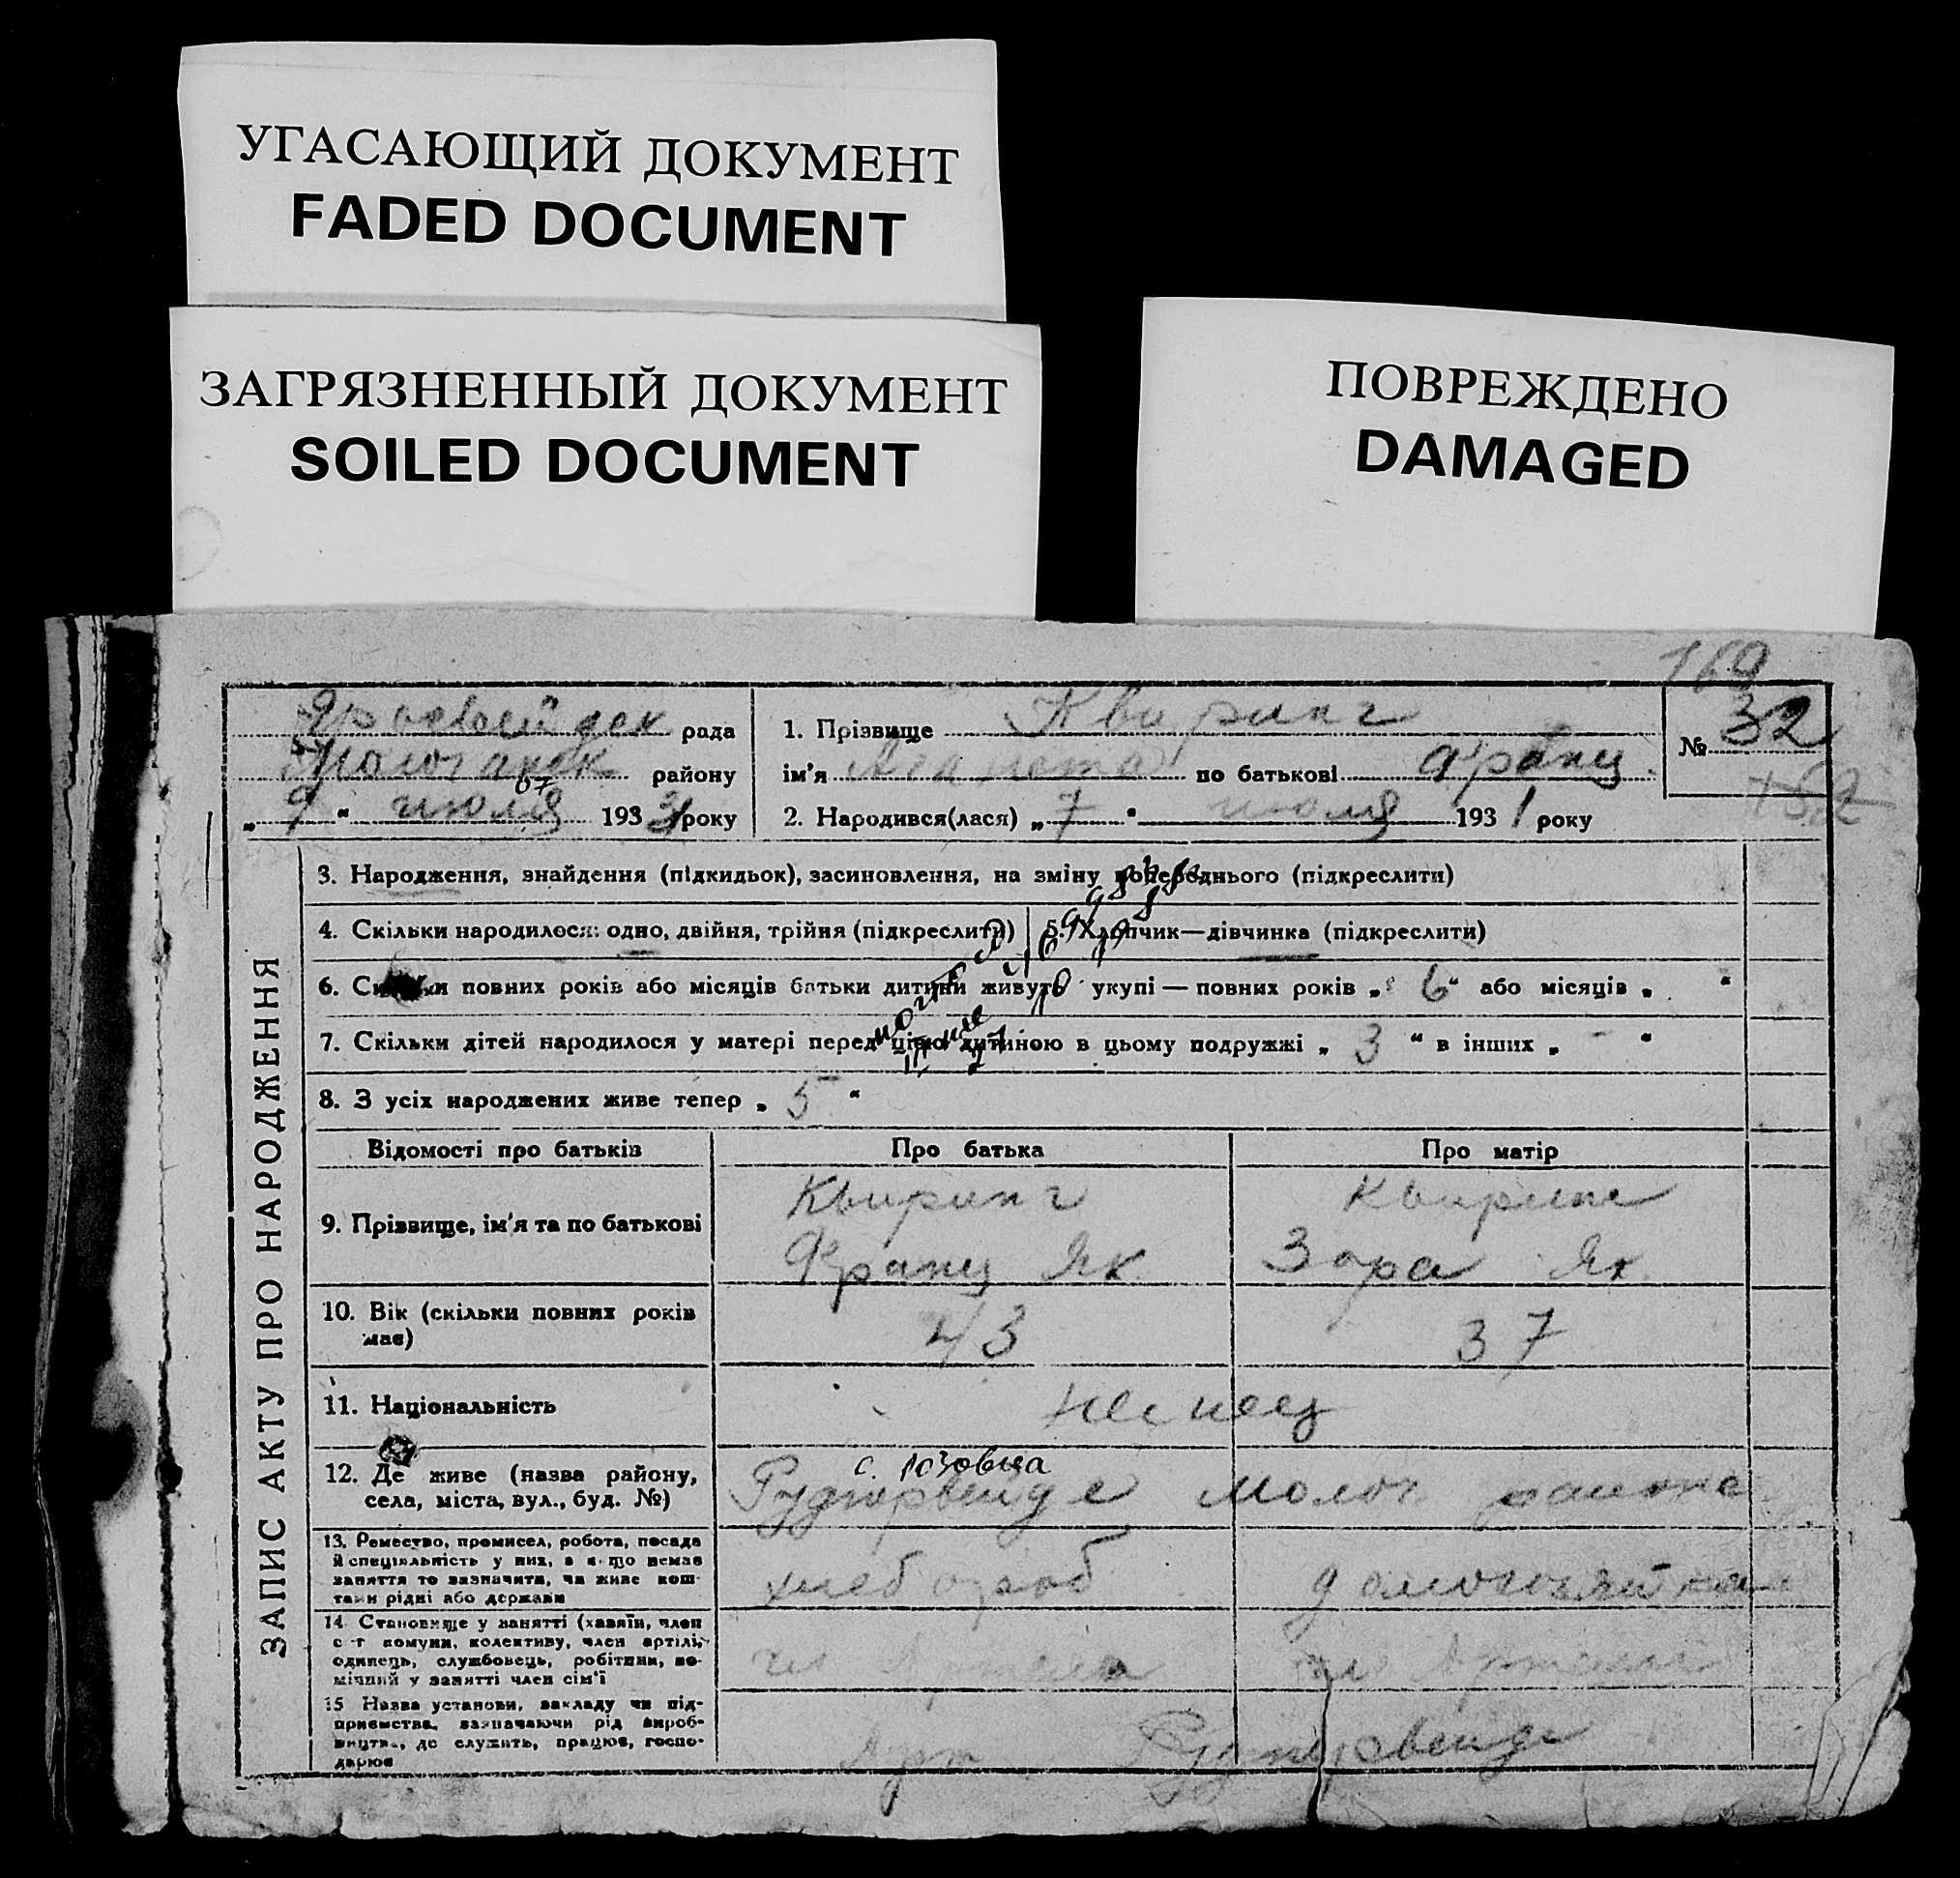 УГАСАЮЩИЙ ДОКУМЕНТ
FADED DOCUMENT
ЗАГРЯЗНЕННЫЙ ДОКУМЕНТ
SOILED DOCUMENT
ПОВРЕЖДЕНО
DAMAGED
рада
району
„ 9 “ июля 193 року
1. Прізвище Квиринг
ім’я по батькові Франц
2. Народився(лася) „ 7 “ июля 1931 року
№ 32
ЗАПИС АКТУ ПРО НАРОДЖЕННЯ
3. Народження, знайдення (підкидьок), засиновлення, на зміну попереднього (підкреслити)
4. Скільки народилося: одно, двійня, трійня (підкреслити)
5. Хлопчик—дівчинка (підкреслити)
6. Скільки повних років або місяців батьки дитини живуть укупі — повних років „ 6 “ або місяців „ “
7. Скільки дітей народилося у матері перед цією дитиною в цьому подружжі „ 3 “ в інших „ - “
8. З усіх народжених живе тепер „ 5 “
Відомості про батьків Про батька Про матір
9. Прізвище, ім’я та по батькові
Квиринг
Франц Як.
Квиринг
Зара Як.
10. Вік (скільки повних років
має)
43
37
11. Національність
немец
12. Де живе (назва району,
села, міста, вул., буд. №)
с. Розовка
Руднервейде Молоч. района
13. Ремество, промисел, робота, посада
й спеціяльність у них, а якщо немає
заняття то зазначити, чи живе кош-
тами рідні або держави
хлебороб
домохозяйка
14. Становище у занятті (хазяїн, член
с-г комуни, колективу, член артілі,
одинець, службовець, робітник, по-
мічний у занятті член сім’ї
чл артели
чл Артели
15 Назва установи, закладу чи під-
приємства, зазначаючи рід вироб-
ництва, де служить, працює, госпо-
дарює
Арт. Руднервейде